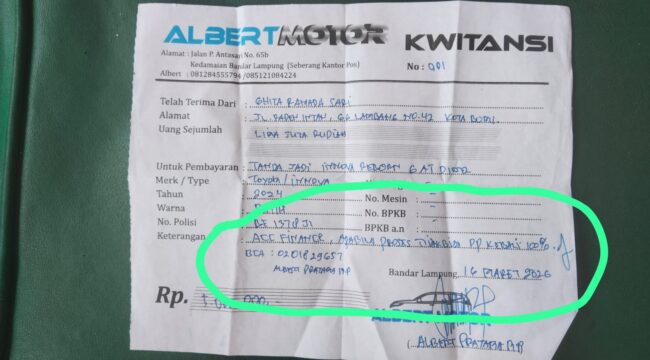 ALBERT MOTOR KWITANSI
Alamat : Jalan P. Antasari No. 65b
Kedamaian Bandar Lampung (Seberang Kantor Pos)
Albert : 081284555794 / 085121084224
No : 001
Telah Terima Dari : GHITA RAMADA SARI
Alamat : JL. RADEN INTAN, GG LAMBANG NO.42 KOTA BUMI
Uang Sejumlah : LIMA JUTA RUPIAH
Untuk Pembayaran : TANDA JADI INNOVA REBORN G AT DIESEL
Merk / Type : Toyota / INNOVA
Tahun : 2024 No. Mesin : -
Warna : No. BPKB : -
No. Polisi : BE 1378 JI BPKB a.n : -
Keterangan : ACC FINANCE, APABILA PROSES TIDAK BISA DP KEMBALI 100%.
BCA : 0201829657
ALBERT PRATAMA
Bandar Lampung, 16 MARET 2026
Rp.
ALBERT
( ALBERT PRATAMA